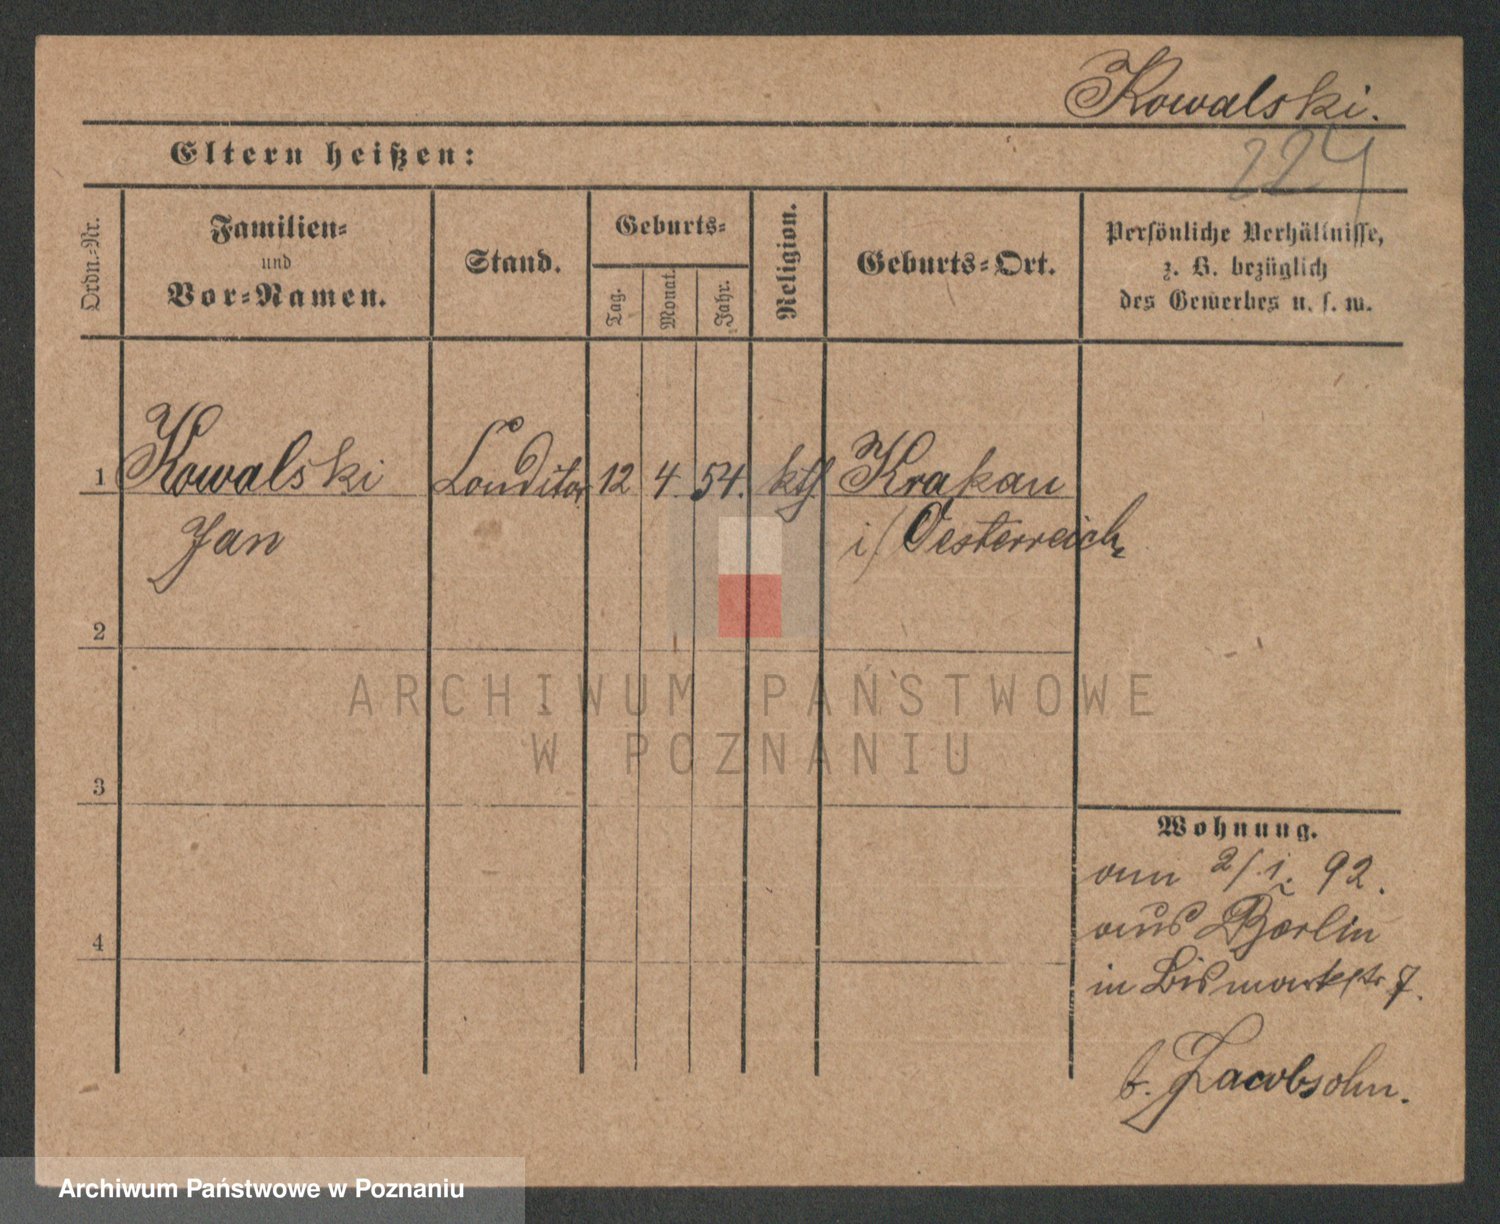 Kowalski.
224
Eltern heißen:
Ordn.-Nr.
Familien-
und
Vor-Namen.
Stand.
Geburts-
Tag.
Monat.
Jahr.
Religion.
Geburts-Ort.
Persönliche Verhältnisse,
z. B. bezüglich
des Gewerbes u. s. w.
1 Kowalski Conditor 12 4. 54. kth Krakau
Jan i/Oesterreich
2
3
4
Wohnung.
am 2/1. 92.
aus Berlin
in Bismarkstr 7.
b. Jacobsohn.
ARCHIWUM PAŃSTWOWE
W POZNANIU
Archiwum Państwowe w Poznaniu